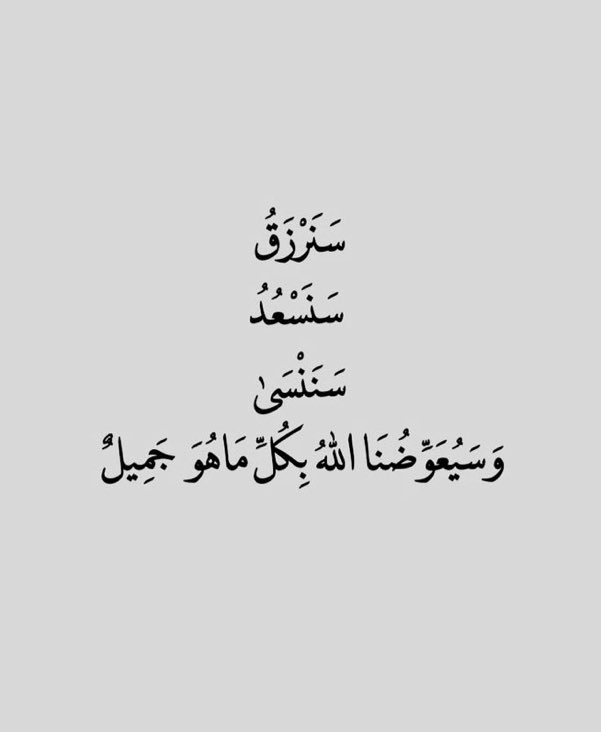 سَنَرْزَقُ
سَنَسْعُدُ
سَنَنْسَىٰ
وَسَيُعَوِّضُنَا اللهُ بِكُلِّ مَاهُوَ جَمِيلٌ